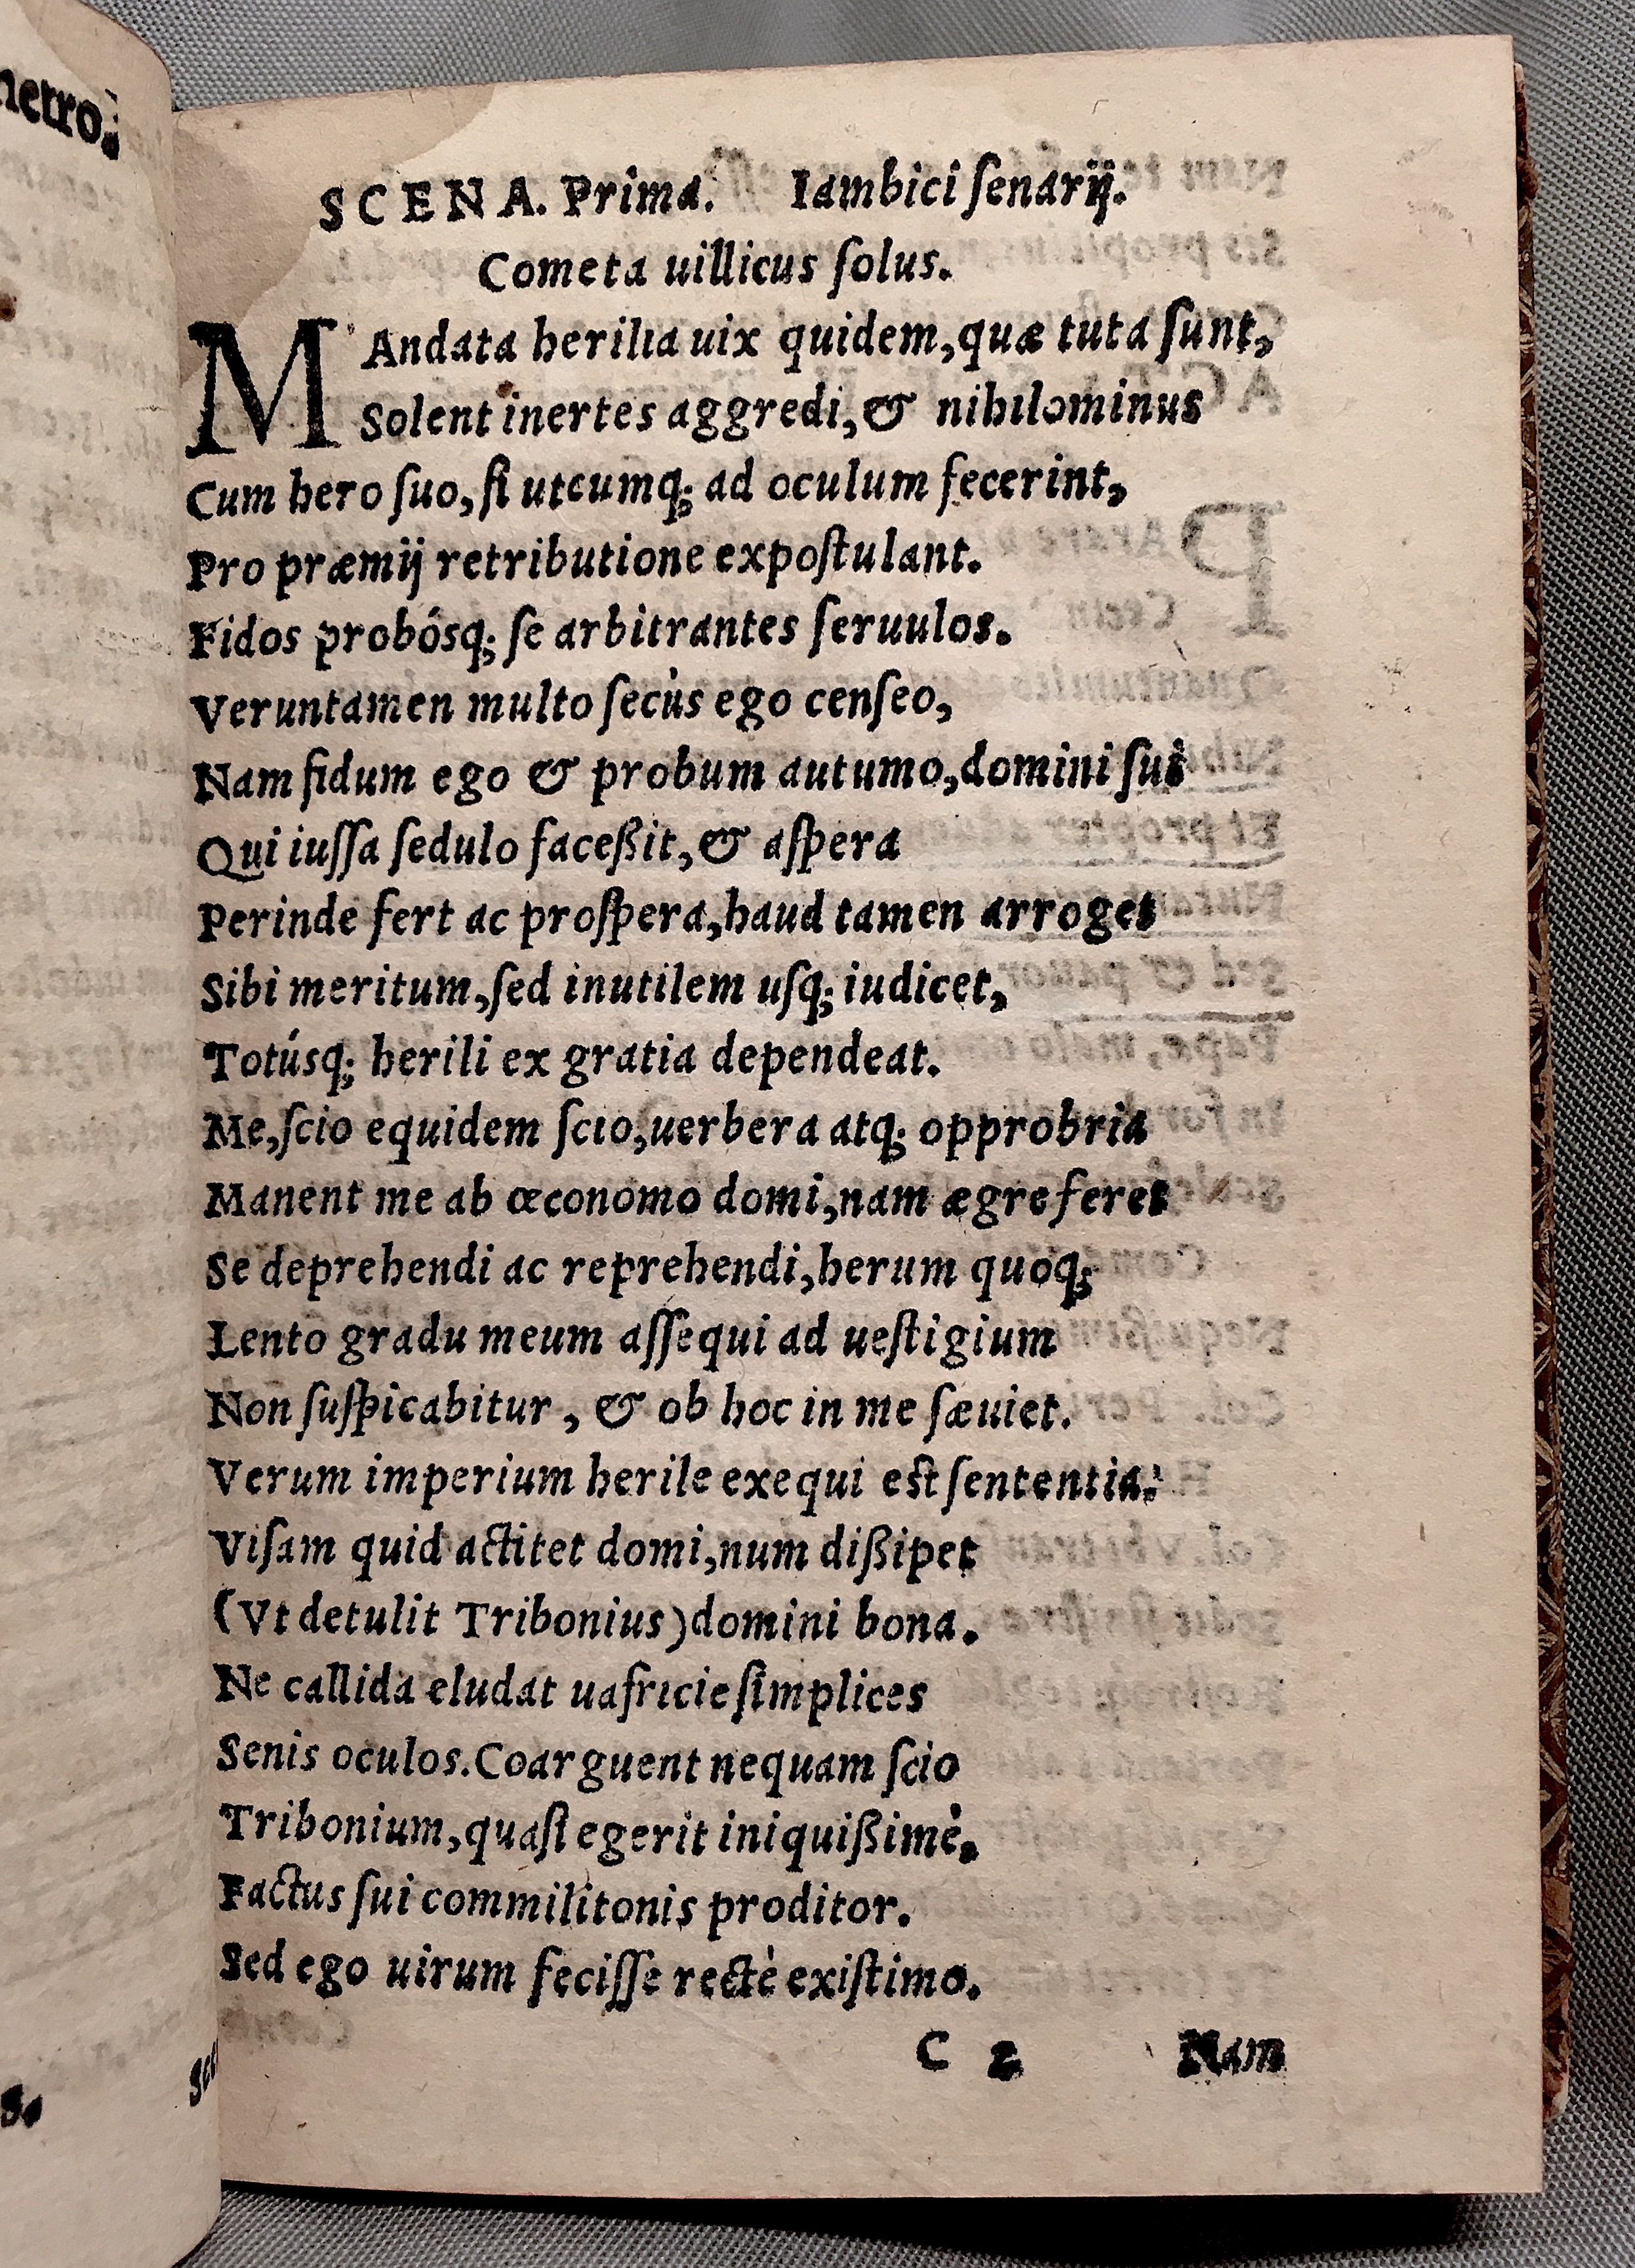 SCENA. Prima. Iambici ſenarij.
Cometa uillicus ſolus.
MAndata herilia uix quidem, quæ tuta ſunt,
Solent inertes aggredi, & nihilominus
Cum hero ſuo, ſi utcumq; ad oculum fecerint,
Pro præmij retributione expoſtulant.
Fidos probósq; ſe arbitrantes ſeruulos.
Veruntamen multo ſecùs ego cenſeo,
Nam fidum ego & probum autumo, domini ſui
Qui iuſſa ſedulo faceßit, & aſpera
Perinde fert ac proſpera, haud tamen arroget
Sibi meritum, ſed inutilem uſq; iudicet,
Totúsq; herili ex gratia dependeat.
Me, ſcio equidem ſcio, uerbera atq; opprobria
Manent me ab œconomo domi, nam ægre feret
Se deprehendi ac reprehendi, herum quoq;
Lento gradu meum aſſequi ad ueſtigium
Non ſuſpicabitur, & ob hoc in me ſæuiet.
Verum imperium herile exequi eſt ſententia:
Viſam quid actitet domi, num dißipet
(Vt detulit Tribonius) domini bona.
Ne callida eludat uafricie ſimplices
Senis oculos. Coarguent nequam ſcio
Tribonium, quaſi egerit iniquißimè,
Factus ſui commilitonis proditor.
Sed ego uirum feciſſe rectè exiſtimo.
C 2 Nam